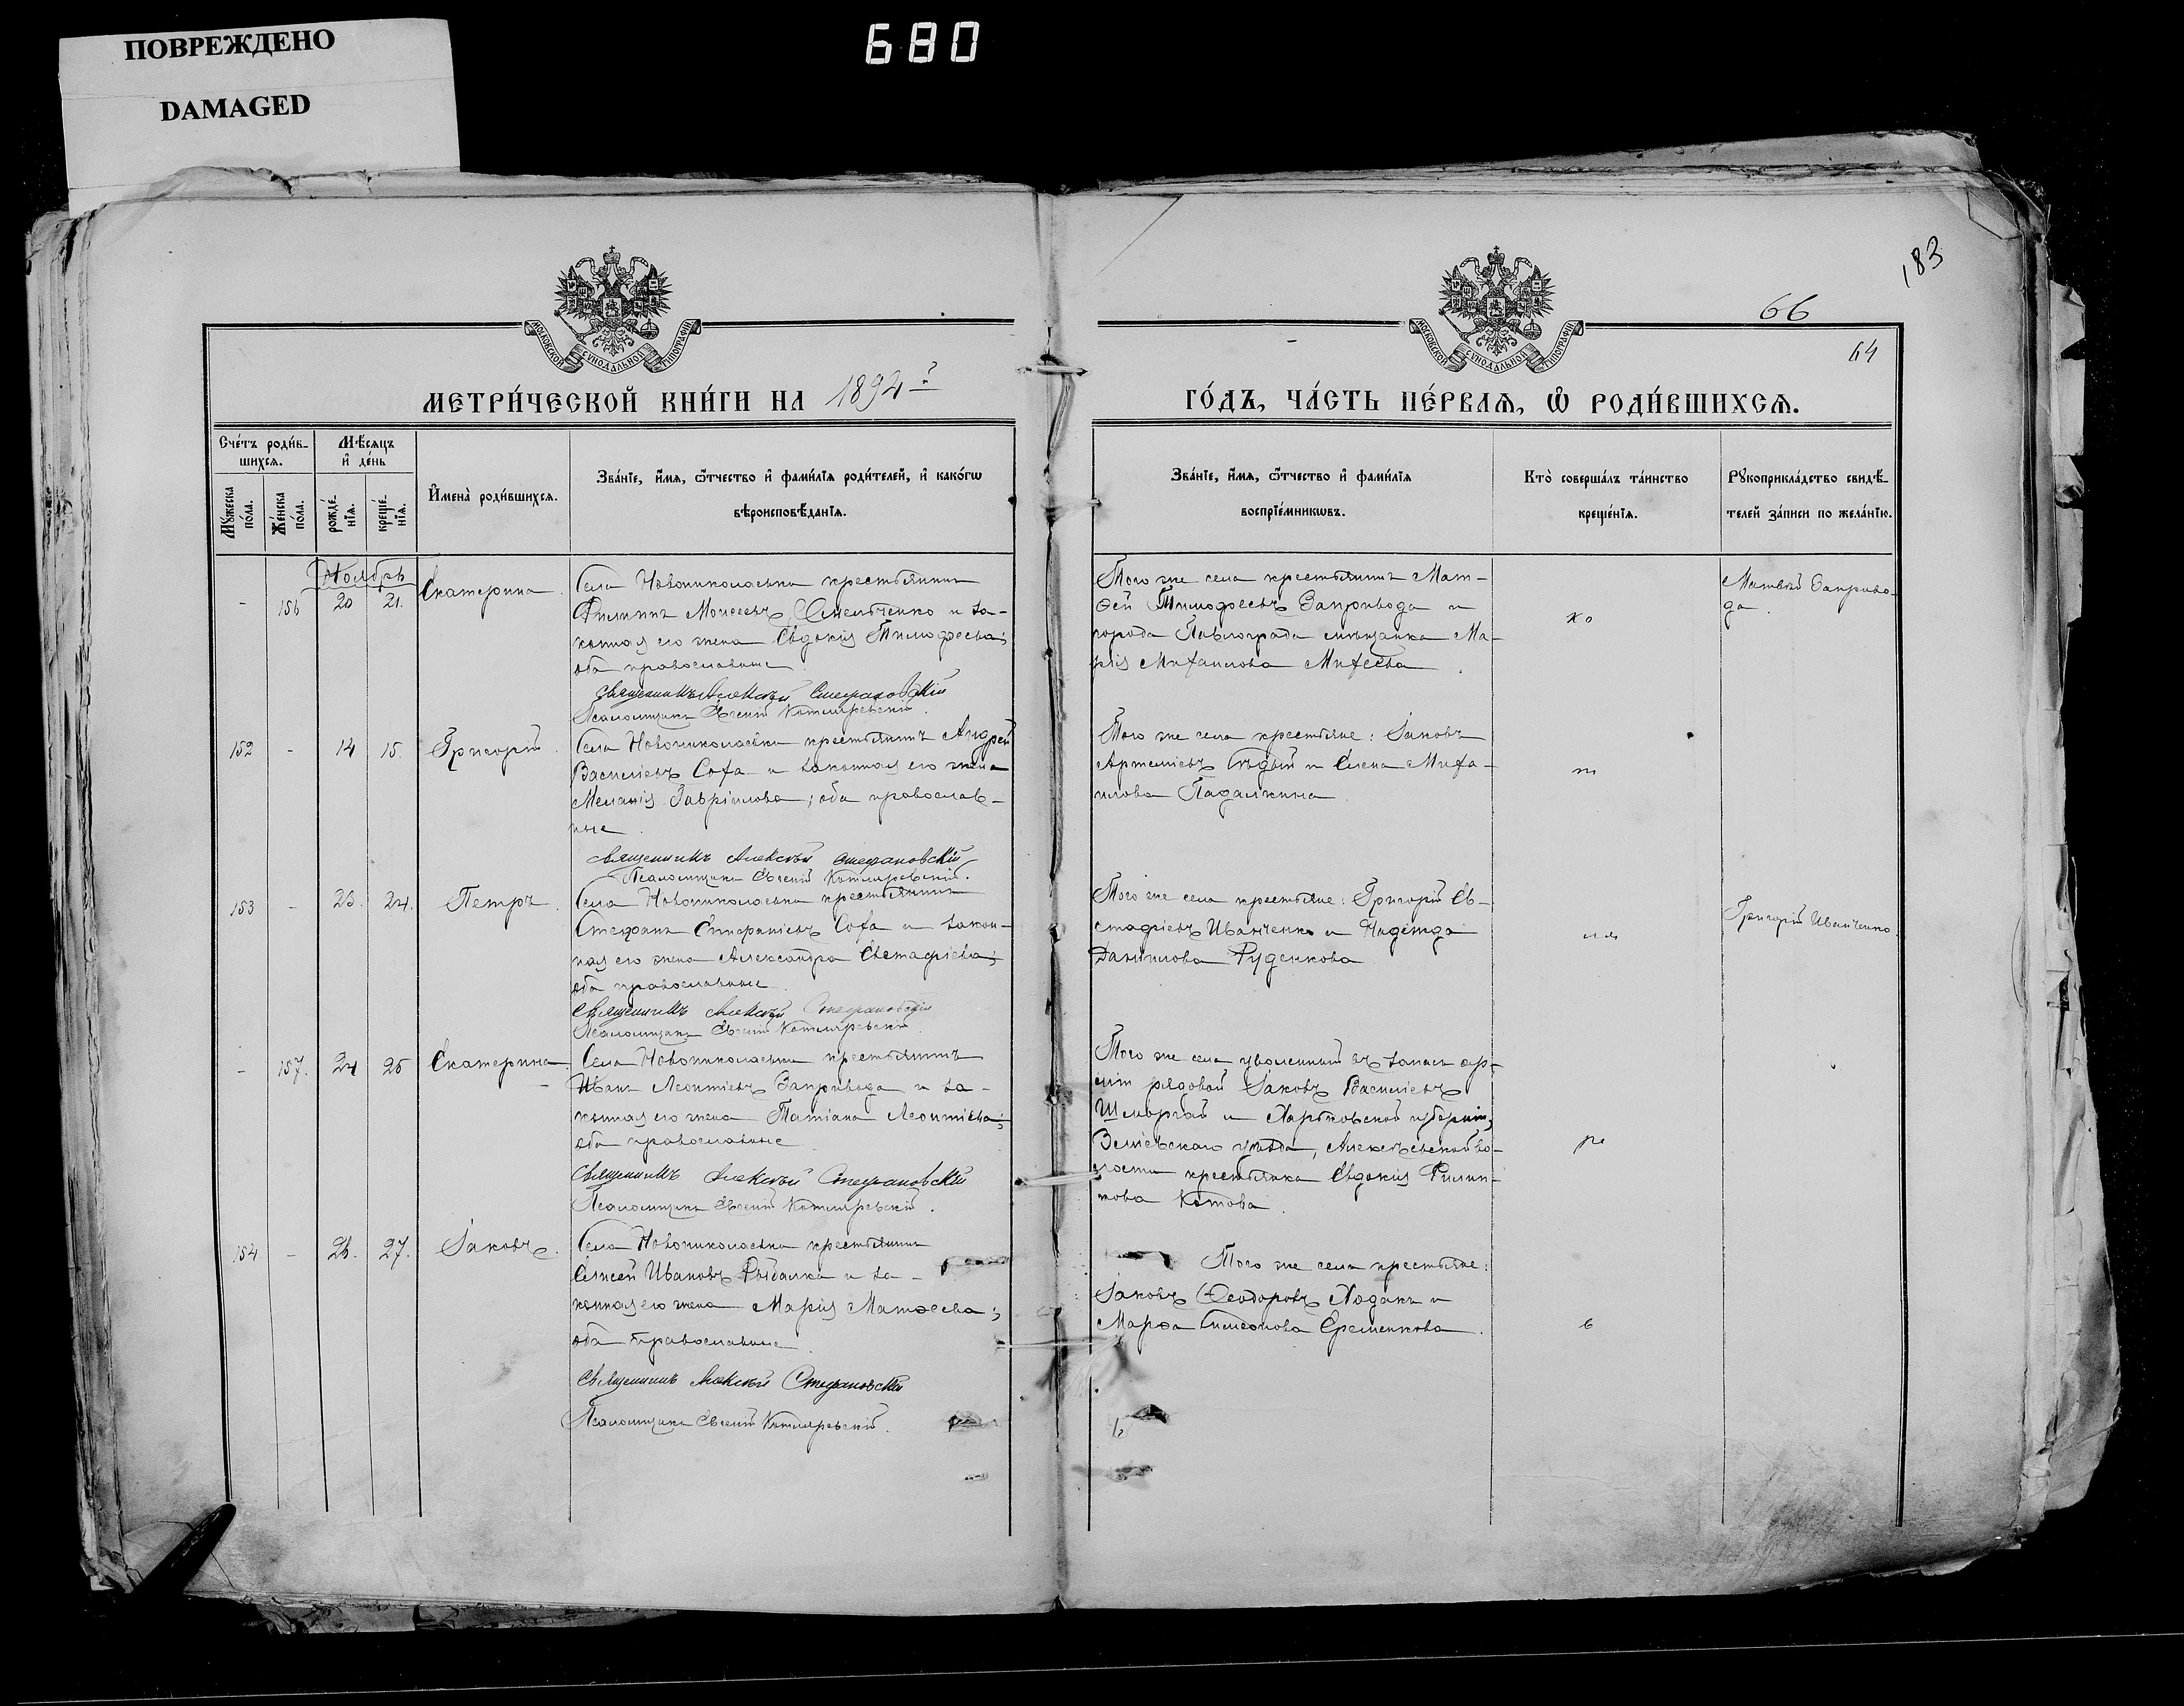 ПОВРЕЖДЕНО
DAMAGED
680
183
66
64
МОСКОВСКОЙ СѴНОДАЛЬНОЙ ТИПОГРАФІИ
МОСКОВСКОЙ СѴНОДАЛЬНОЙ ТИПОГРАФІИ
МЕТРИ́ЧЕСКОЙ КНИ́ГИ НА 1894
ГО́ДЪ, ЧА́СТЬ ПЕ́РВАѦ, Ѡ РОДИ́ВШИХСѦ.
Сче́тъ роди́в-
шихсѧ.
Мѣ́сѧцъ
и҆ де́нь
Мꙋ́жеска по́ла.
Же́нска по́ла.
рожде́-нїѧ.
креще́-нїѧ.
И҆мена̀ роди́вшихсѧ.
Зва́нїе, и҆́мѧ, ѻ҆́тчество и҆ фами́лїѧ роди́телей, и҆ како́гѡ
вѣроисповѣ́данїѧ.
Зва́нїе, и҆́мѧ, ѻ҆́тчество и҆ фами́лїѧ
воспрїе́мникѡвъ.
Кто̀ соверша́лъ та́инство
креще́нїѧ.
Рꙋкоприкла́дство свидѣ́-
телей за́писи по жела́нїю.
Ноябрь
- 156 20 21. Екатерина.
Села Новониколаевки крестьянинъ
Филиппъ Моисеевъ Омельченко и за-
конная его жена Евдокія Тимофеева;
оба православные.
Священникъ Алексѣй Стефановскій
Псаломщикъ Евгеній Котляревскій.
Того же села крестьянинъ Мат-
ѳей Тимофеевъ Запривода и
города Павлограда мѣщанка Ма-
рія Михаилова Михеева.
ко
Матвѣй Заприво-
да.
152 - 14 15. Григорій.
Села Новониколаевки крестьянинъ Андрей
Василіевъ Соха и законная его жена
Меланія Гавріилова; оба православ-
ные.
Священникъ Алексѣй Стефановскій
Псаломщикъ Евгеній Котляревскій.
Того же села крестьяне: Іаковъ
Артеміевъ Сѣдый и Елена Миха-
илова Падалкина.
т
153 - 23. 24. Петръ.
Села Новониколаевки крестьянинъ
Стефанъ Епифаніевъ Соха и закон-
ная его жена Александра Евстафіева;
оба православные.
Священникъ Алексѣй Стефановскій
Псаломщикъ Евгеній Котляревскій.
Того же села крестьяне: Григорій Ев-
стафіевъ Иванченко и Надежда
Даниилова Руденкова
ля
Григорій Иванченко.
- 157. 24 25 Екатерина.
Села Новониколаевки крестьянинъ
Иванъ Леонтіевъ Запривода и за-
конная его жена Татіана Леонтіева;
оба православные
Священникъ Алексѣй Стефановскій
Псаломщикъ Евгеній Котляревскій.
Того же села уволенный въ запасъ ар-
міи рядовой Іаковъ Василіевъ
Шморгай и Харьковской губерніи,
Зміевскаго уѣзда, Алексѣевской во-
лости крестьянка Евдокія Филип-
пова Котова.
ре
154 - 26. 27. Іаковъ.
Села Новониколаевки крестьянинъ
Елисей Ивановъ Рыбалка и за-
конная его жена Марія Матѳеева;
оба православные.
Священникъ Алексѣй Стефановскій
Псаломщикъ Евгеній Котляревскій.
Того же села крестьяне:
Іаковъ Ѳеодоровъ Лодакъ и
Марѳа Симеонова Еременкова.
в